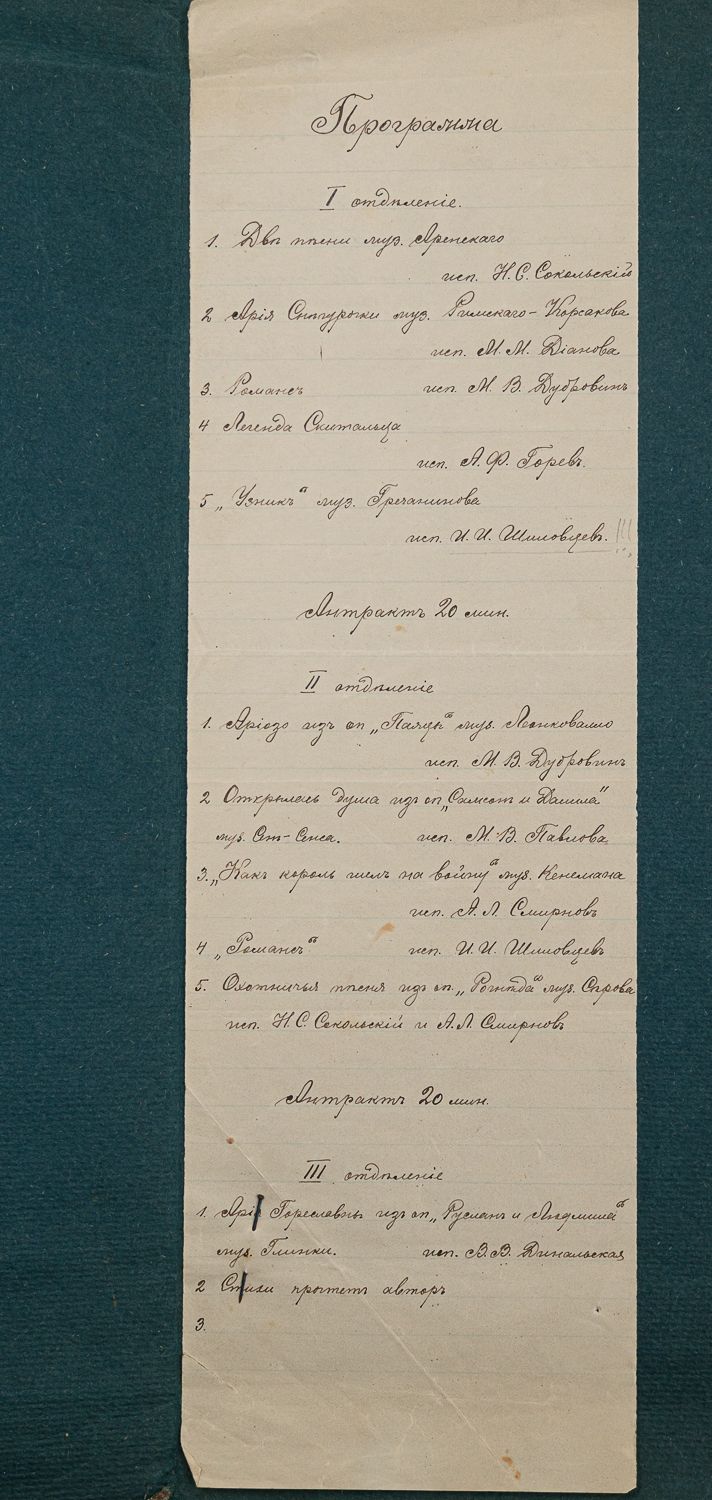 Программа
I отдѣленіе.
1. Двѣ пѣсни муз. Аренскаго
исп. Н. С. Сокольскій
2 Арія Снѣгурочки муз. Римскаго-Корсакова
исп. М. М. Діанова
3. Романсъ исп. М. В. Дубровинъ
4 Легенда Скитальца
исп. А. Ф. Горевъ.
5 „Узникъ“ муз. Гречанинова
исп. И. И. Шиловцевъ. !!!
Антрактъ 20 мин.
II отдѣленіе
1. Аріозо изъ оп „Паяцы“ муз. Леонковалло
исп. М. В. Дубровинъ
2 Открылась душа изъ оп „Самсонъ и Далила“
муз. Сен-Санса. исп. М. В. Павлова
3. „Какъ король шелъ на войну“ муз. Кенемана
исп. А. Л. Смирновъ
4 „Романсъ“ исп. И. И. Шиловцевъ
5. Охотничья пѣсня изъ оп. „Рогнѣда“ муз. Сѣрова
исп. Н. С. Сокольскій и А. Л. Смирновъ
Антрактъ 20 мин.
III отдѣленіе
1. Арія Гореславы изъ оп „Русланъ и Людмила“
муз. Глинки. исп. В. В. Динальская
2 Стихи прочтетъ авторъ
3.